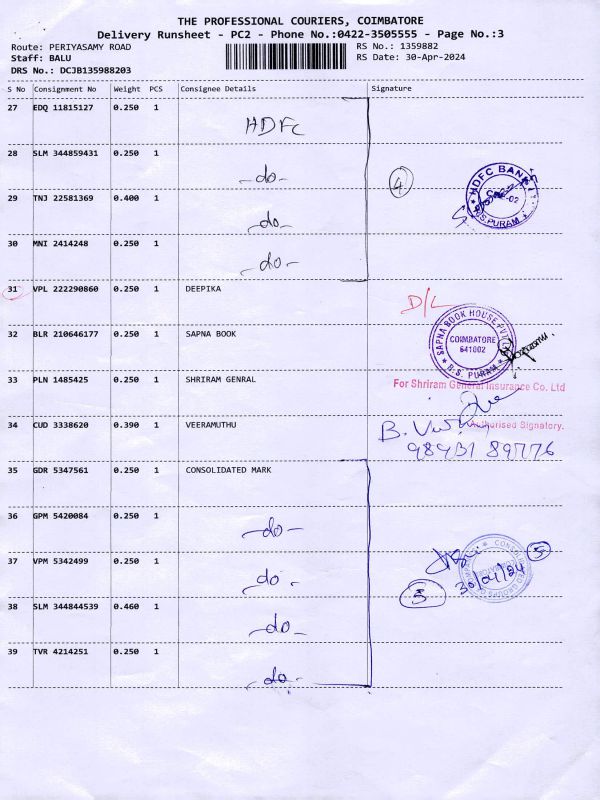 THE PROFESSIONAL COURIERS, COIMBATORE
Delivery Runsheet - PC2 - Phone No.:0422-3505555 - Page No.:3
Route: PERIYASAMY ROAD
RS No.: 1359882
Staff: BALU
RS Date: 30-Apr-2024
DRS No.: DCJB135988203
S No Consignment No Weight PCS Consignee Details Signature
27 EDQ 11815127 0.250 1 HDFC
28 SLM 344859431 0.250 1 -do-
4
HDFC BANK
R.S. PURAM
29 TNJ 22581369 0.400 1 -do-
30 MNI 2414248 0.250 1 -do-
31 VPL 222290860 0.250 1 DEEPIKA
D/L
32 BLR 210646177 0.250 1 SAPNA BOOK
SAPNA BOOK HOUSE PVT
COIMBATORE
641002
R.S. PURAM
33 PLN 1485425 0.250 1 SHRIRAM GENRAL
For Shriram General Insurance Co. Ltd
Authorised Signatory.
34 CUD 3338620 0.390 1 VEERAMUTHU
98431 89776
35 GDR 5347561 0.250 1 CONSOLIDATED MARK
36 GPM 5420084 0.250 1 -do-
5
37 VPM 5342499 0.250 1 -do-
30/04/24
5
38 SLM 344844539 0.460 1 -do-
39 TVR 4214251 0.250 1 -do-